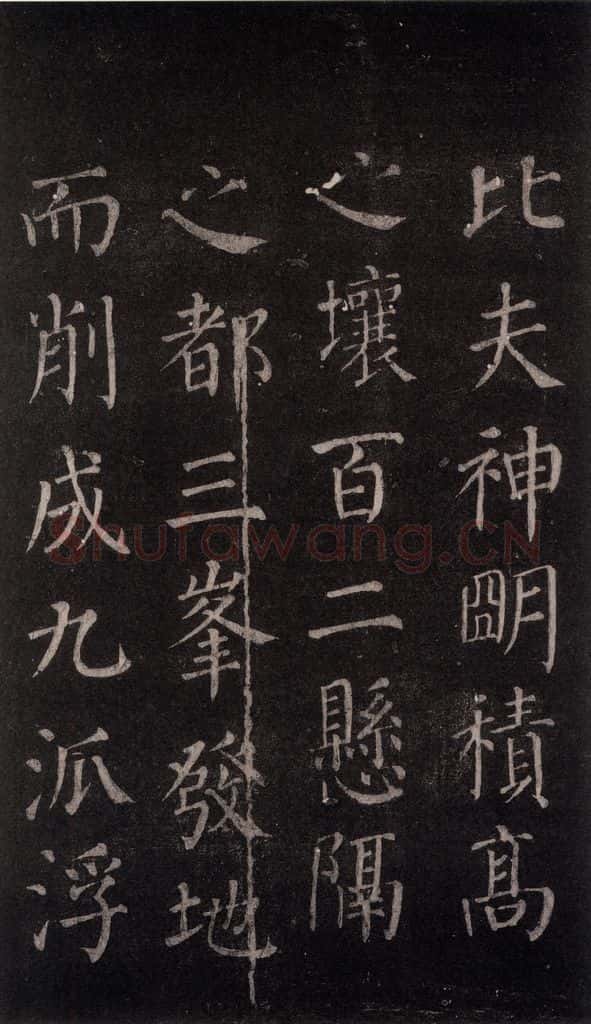 比夫神朙積髙
之壤百二懸隔
之都三峯發地
而削成九派浮
Shufawang.CN